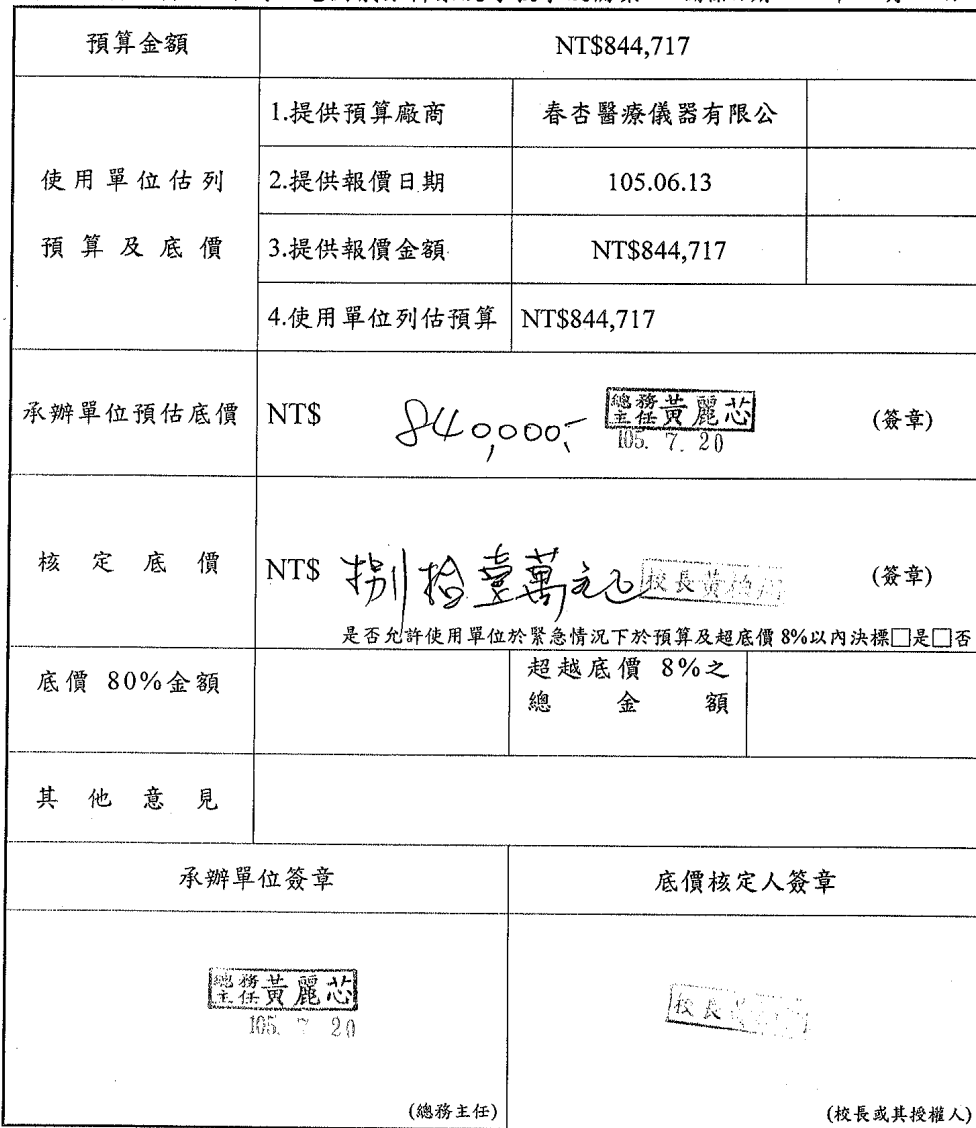 預算金額 NT$844,717
使用單位估列
預算及底價
1.提供預算廠商 春杏醫療儀器有限公
2.提供報價日期 105.06.13
3.提供報價金額 NT$844,717
4.使用單位列估預算 NT$844,717
承辦單位預估底價 NT$ 840,000.- 總務主任 黃麗芯 (簽章)
105. 7. 20
核定底價 NT$ 捌拾壹萬元正 校長黃 (簽章)
是否允許使用單位於緊急情況下於預算及超底價 8%以內決標□是□否
底價 80%金額
超越底價 8%之
總金額
其他意見
承辦單位簽章 底價核定人簽章
總務主任 黃麗芯
105. 7 20
校長
(總務主任) (校長或其授權人)